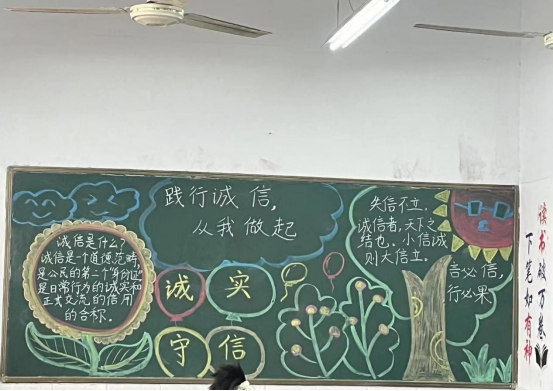 践行诚信,
从我做起
诚信是什么?
诚信是一个道德范畴,
是公民的第二个“身份证”
是日常行为的诚实和
正式交流的信用
的合称.
诚 实
守 信
失信不立.
诚信者,天下之
结也.小信诚
则大信立.
言必信,
行必果
读书破万卷
下笔如有神